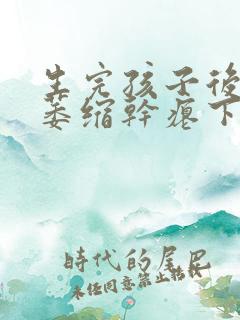 生完孩子後
萎缩幹瘪下
時代的尾巴
未经同意禁止转载